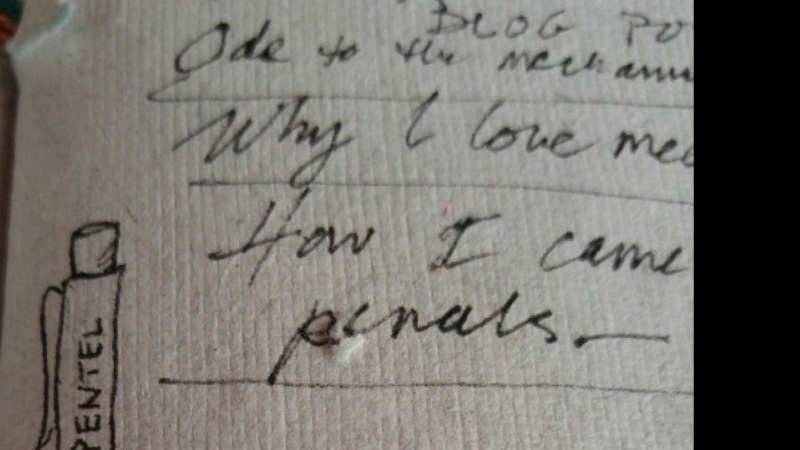 BLOG PO
Ode to the mechanic
Why I love mec
How I came
pencils.—
PENTEL